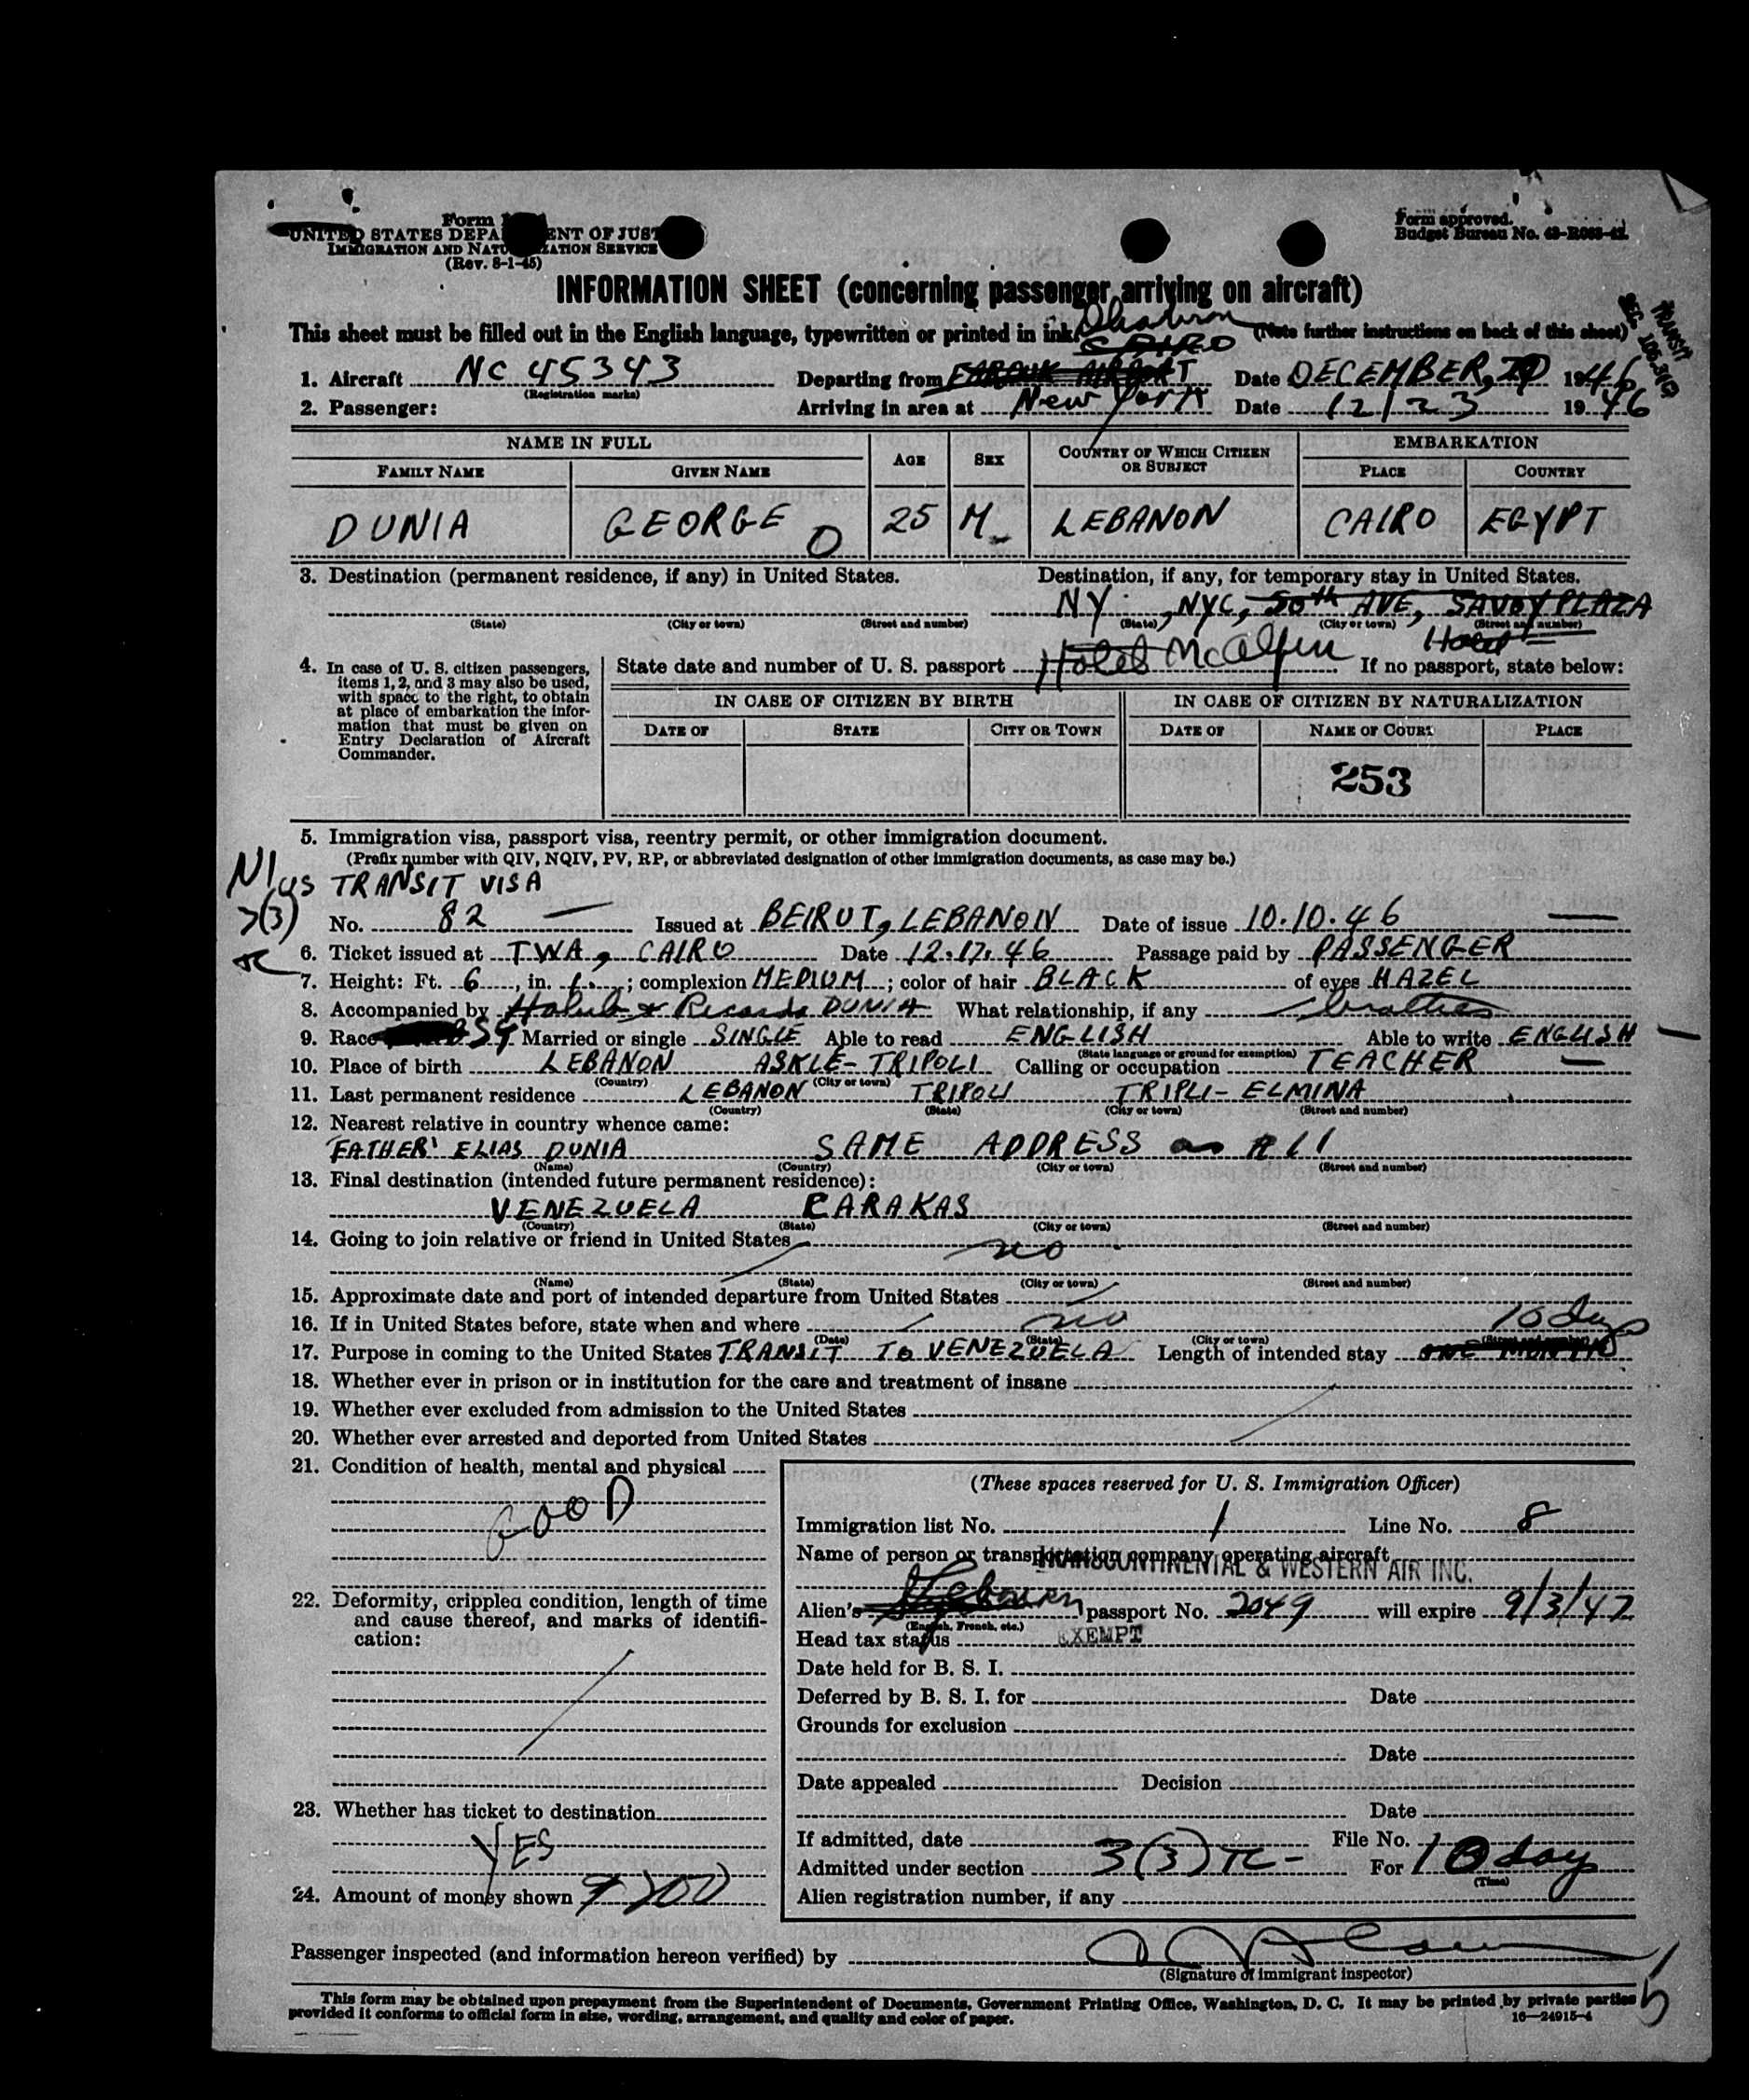 Form
UNITED STATES DEPA ENT OF JUST
IMMIGRATION AND NATU IZATION SERVICE
(Rev. 8-1-45)
Form approved.
Budget Bureau No.
INFORMATION SHEET (concerning passenger arriving on aircraft)
This sheet must be filled out in the English language, typewritten or printed in ink. (Note further instructions on back of this sheet)
Dhahran
CAIRO
TRANSIT
1. Aircraft NC 45343 Departing from FAROUK AIRPORT Date DECEMBER, 1946
(Registration marks)
2. Passenger: Arriving in area at New York Date 12/23 1946
NAME IN FULL AGE SEX COUNTRY OF WHICH CITIZEN OR SUBJECT EMBARKATION
FAMILY NAME GIVEN NAME PLACE COUNTRY
DUNIA GEORGE O 25 M LEBANON CAIRO EGYPT
3. Destination (permanent residence, if any) in United States. Destination, if any, for temporary stay in United States.
NY, NYC, 50th AVE, SAVOY PLAZA
(State) (City or town) (Street and number) (State) (City or town) (Street and number)
Hotel
4. In case of U. S. citizen passengers, items 1, 2, and 3 may also be used, with space to the right, to obtain at place of embarkation the information that must be given on Entry Declaration of Aircraft Commander.
State date and number of U. S. passport Hotel McAlpin If no passport, state below:
IN CASE OF CITIZEN BY BIRTH IN CASE OF CITIZEN BY NATURALIZATION
DATE OF STATE CITY OR TOWN DATE OF NAME OF COURT PLACE
253
5. Immigration visa, passport visa, reentry permit, or other immigration document.
(Prefix number with QIV, NQIV, PV, RP, or abbreviated designation of other immigration documents, as case may be.)
NI
US TRANSIT VISA
3(3)
No. 82 Issued at BEIRUT, LEBANON Date of issue 10.10.46
6. Ticket issued at TWA, CAIRO Date 12.17.46 Passage paid by PASSENGER
7. Height: Ft. 6, in. 1; complexion MEDIUM; color of hair BLACK of eyes HAZEL
8. Accompanied by Habib & Ricardo DUNIA What relationship, if any brothers
9. Race Married or single SINGLE Able to read ENGLISH Able to write ENGLISH
(State language or ground for exemption)
10. Place of birth LEBANON ASKLE-TRIPOLI Calling or occupation TEACHER
(Country) (City or town)
11. Last permanent residence LEBANON TRIPOLI TRIPLI-ELMINA
(Country) (State) (City or town) (Street and number)
12. Nearest relative in country whence came:
FATHER: ELIAS DUNIA SAME ADDRESS as # 11
(Name) (Country) (City or town) (Street and number)
13. Final destination (intended future permanent residence):
VENEZUELA CARAKAS
(Country) (State) (City or town) (Street and number)
14. Going to join relative or friend in United States no
(Name) (State) (City or town) (Street and number)
15. Approximate date and port of intended departure from United States
16. If in United States before, state when and where no
10 days
(Date) (State) (City or town) (Street and number)
17. Purpose in coming to the United States TRANSIT TO VENEZUELA Length of intended stay ONE MONTH
18. Whether ever in prison or in institution for the care and treatment of insane
19. Whether ever excluded from admission to the United States
20. Whether ever arrested and deported from United States
21. Condition of health, mental and physical
GOOD
22. Deformity, crippled condition, length of time and cause thereof, and marks of identification:
23. Whether has ticket to destination
YES
24. Amount of money shown
(These spaces reserved for U. S. Immigration Officer)
Immigration list No. 1 Line No. 8
Name of person or transportation company operating aircraft
TRANSCONTINENTAL & WESTERN AIR INC.
Alien's Lebanon passport No. 2049 will expire 9/3/47
(English, French, etc.)
Head tax status EXEMPT
Date held for B. S. I.
Deferred by B. S. I. for Date
Grounds for exclusion
Date
Date appealed Decision
Date
If admitted, date File No.
Admitted under section 3(3) TC- For 10 days
(Time)
Alien registration number, if any
Passenger inspected (and information hereon verified) by
(Signature of immigrant inspector)
This form may be obtained upon prepayment from the Superintendent of Documents, Government Printing Office, Washington, D. C. It may be printed by private parties
provided it conforms to official form in size, wording, arrangement, and quality and color of paper. 16—24915-4